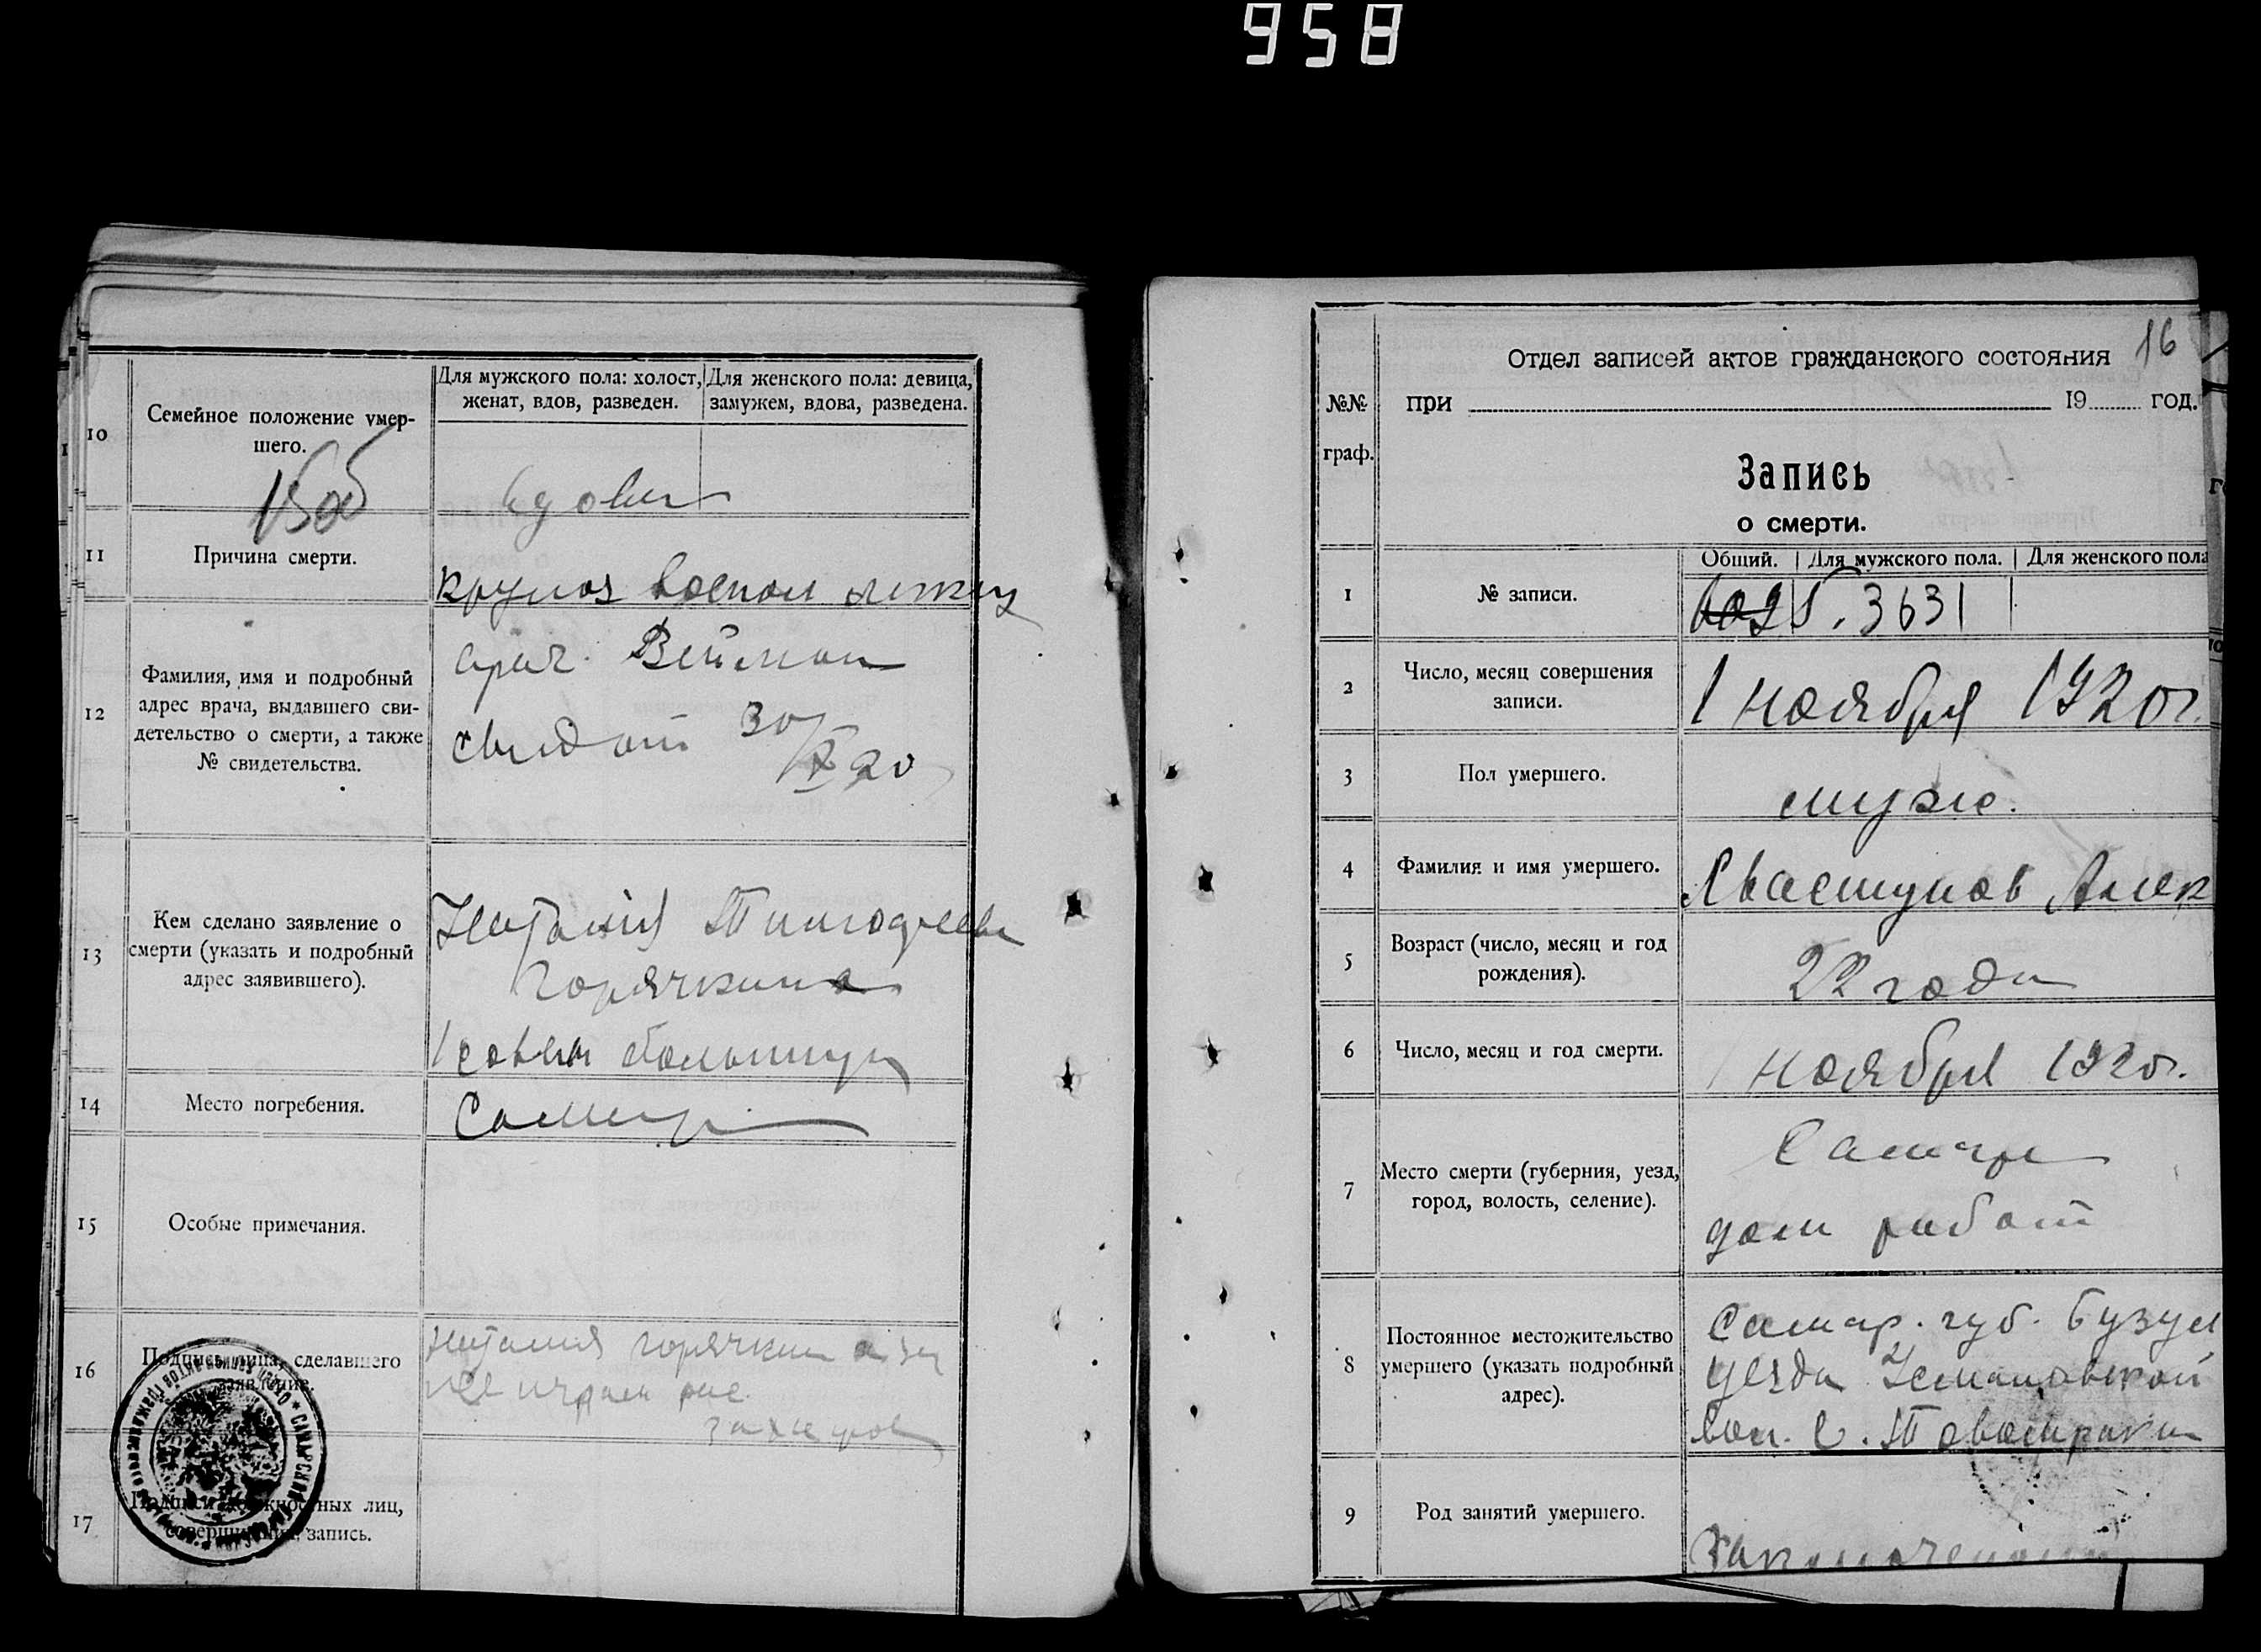 958
10
Семейное положение умер-
шего.
Для мужского пола: холост,
женат, вдов, разведен.
Для женского пола: девица,
замужем, вдова, разведена.
вдова
11
Причина смерти.
крупоз воспал легких
12
Фамилия, имя и подробный
адрес врача, выдавшего сви-
детельство о смерти, а также
№ свидетельства.
врач. Вейсман
свид от 30/X 20
13
Кем сделано заявление о
смерти (указать и подробный
адрес заявившего).
Наталия Тимофеева
Горячкина
1 совет больницы
14
Место погребения.
Самара
15
Особые примечания.
16
Подпись лица, сделавшего
заявление.
Наталия Горячкина а за
захаров
17
Подписи должностных лиц,
совершивших запись.
16
№№
граф.
Отдел записей актов гражданского состояния
при 19 год.
Запись
о смерти.
1
№ записи.
Общий. Для мужского пола. Для женского пола
3631
2
Число, месяц совершения
записи.
1 ноября 1920 г.
3
Пол умершего.
муж.
4
Фамилия и имя умершего.
Хвастунов Алек
5
Возраст (число, месяц и год
рождения).
22 года
6
Число, месяц и год смерти.
1 ноября 1920 г.
7
Место смерти (губерния, уезд,
город, волость, селение).
Самара
дом работ
8
Постоянное местожительство
умершего (указать подробный
адрес).
Самар. губ. Бузул
уезда
вол. с.
9
Род занятий умершего.
Заключенный